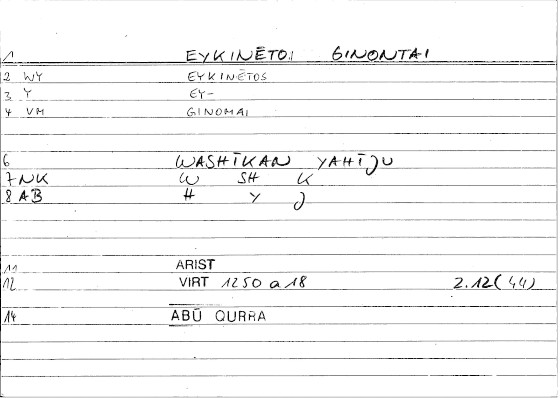 1 EYKINĒTOI GINONTAI
2 WY EYKINĒTOS
3 Y EY-
4 VM GINOMAI
6 WASHĪKAN YAHĪJU
7 NK W SH K
8 AB H Y J
11 ARIST
12 VIRT 1250 a 18 2.12(44)
14 ABŪ QURRA